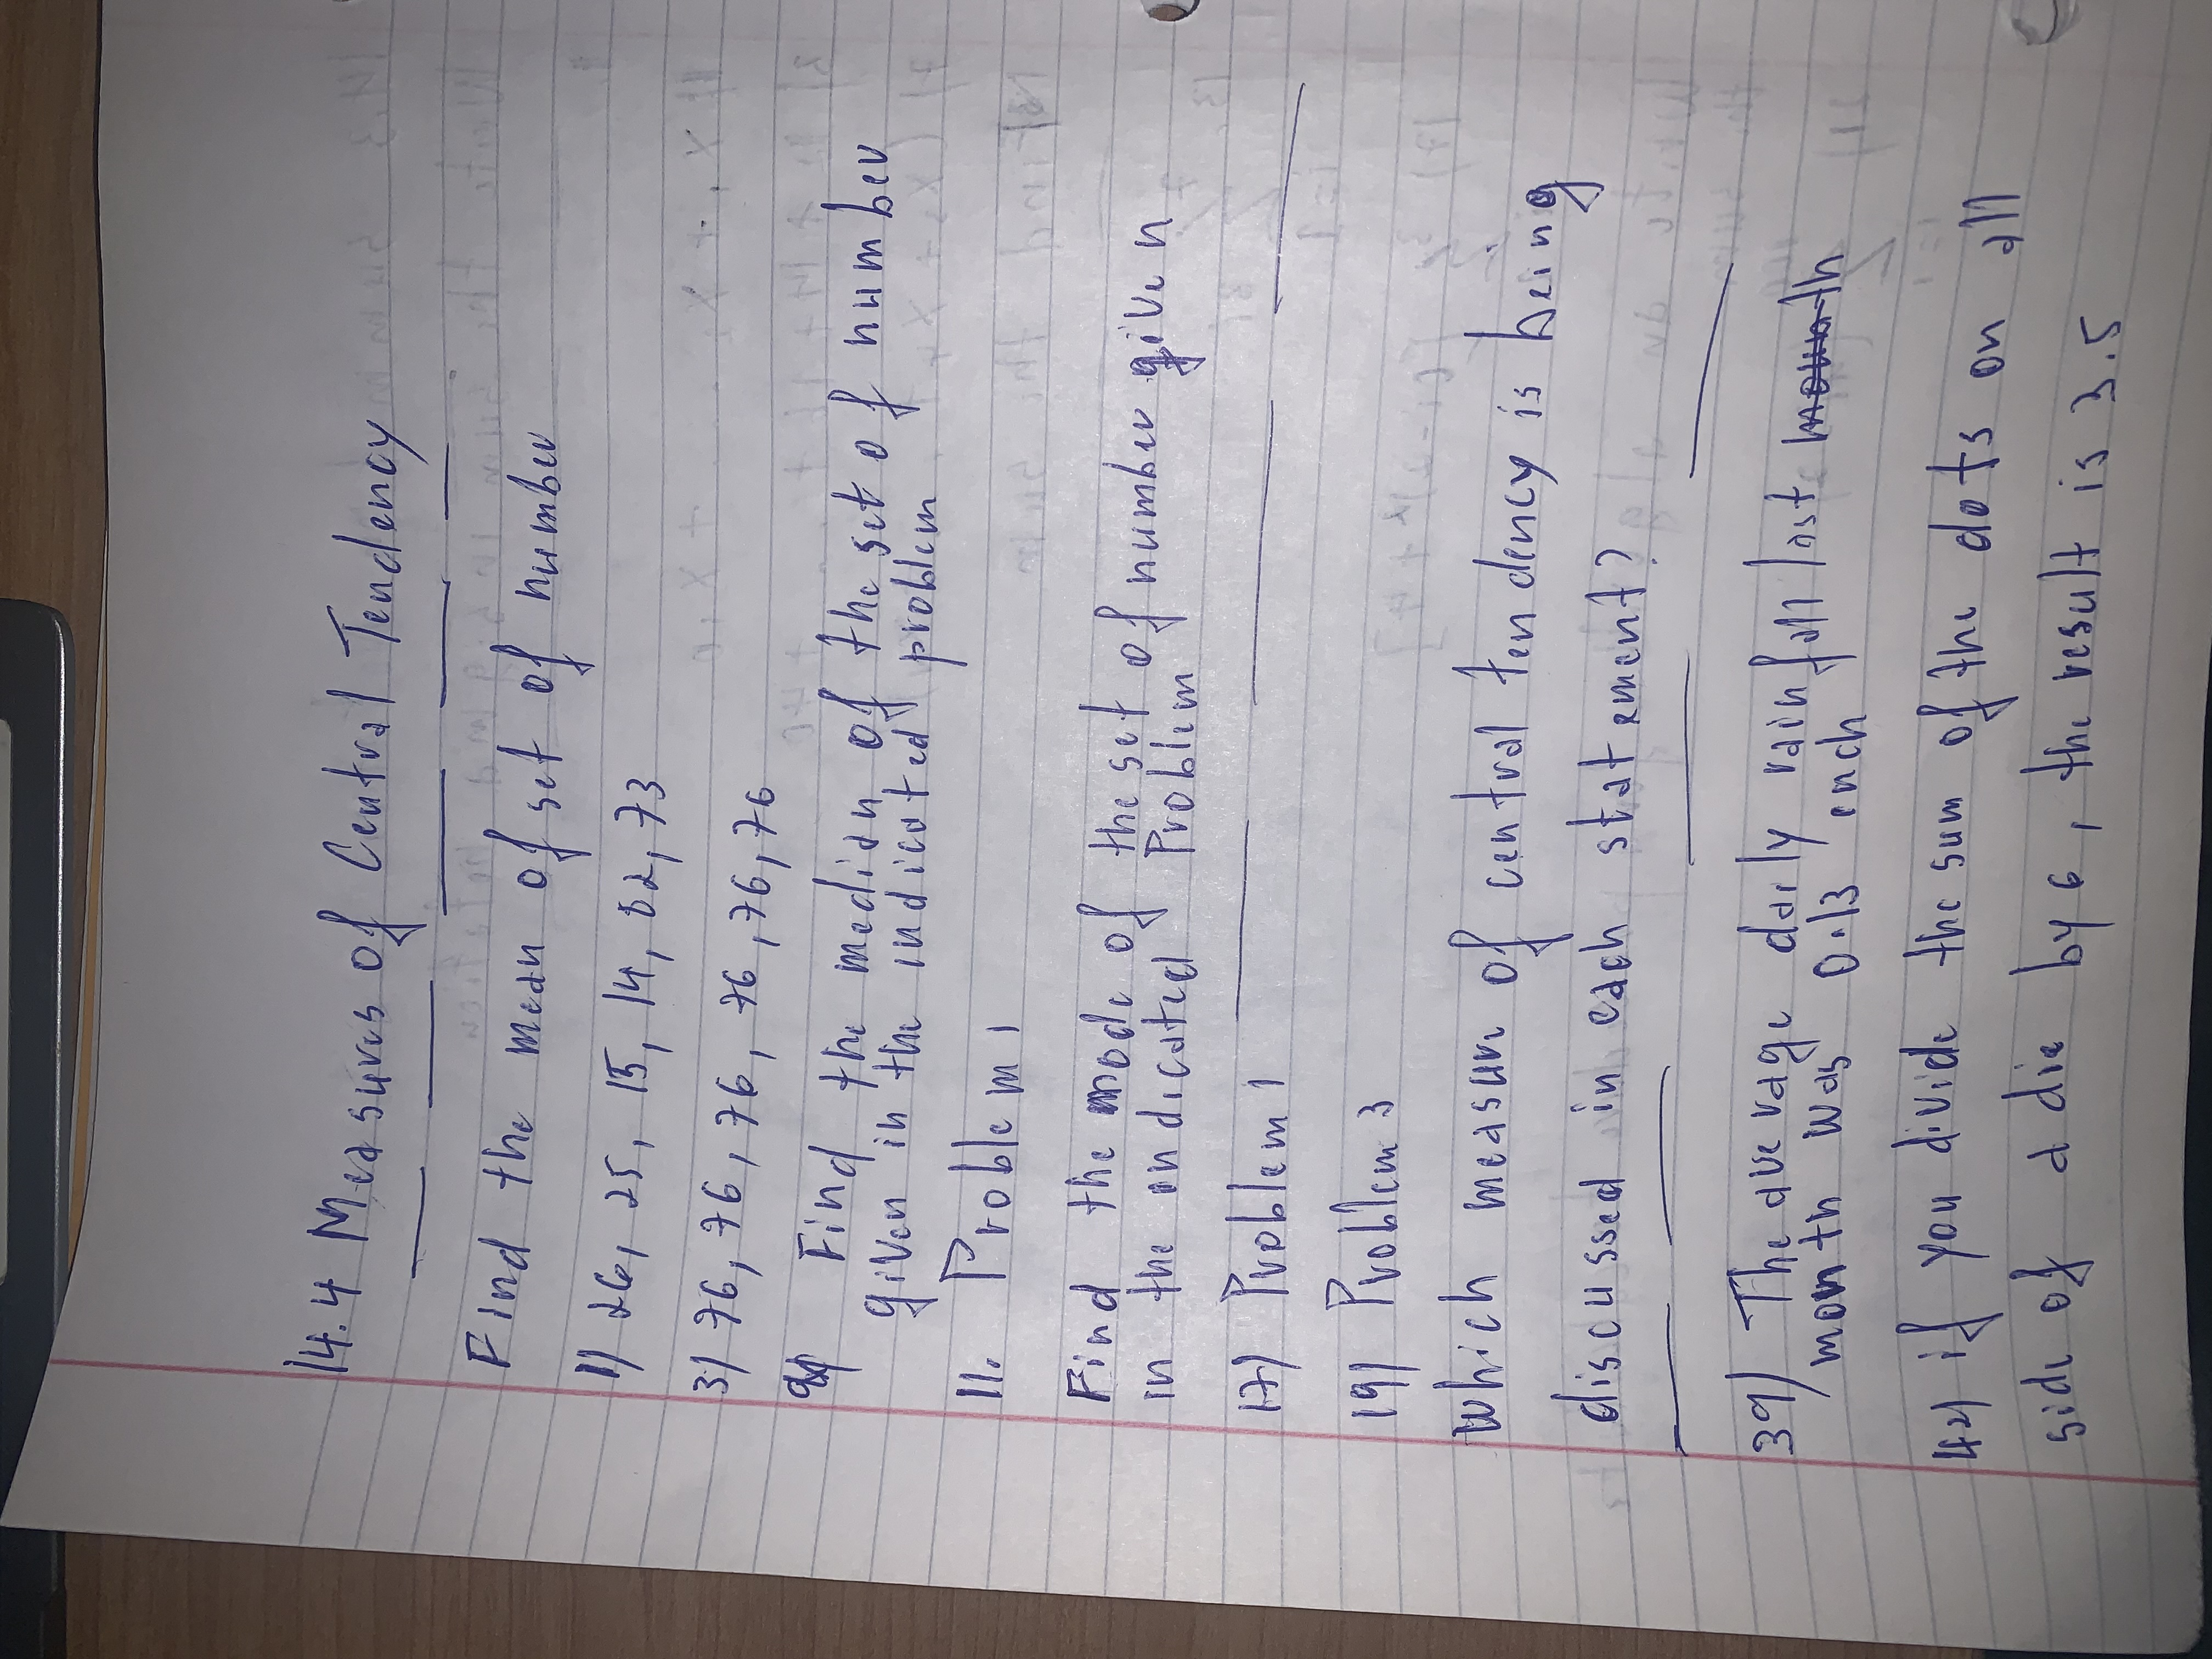 14.4 Measures of Central Tendency
Find the mean of set of number
1) 26, 25, 15, 14, 82, 73
3) 76, 76, 76, 76, 76, 76, 76
Find the median of the set of number
given in the indicated problem
11. Problem 1
Find the mode of the set of number given
in the indicated Problem
17) Problem 1
19) Problem 3
Which measure of central tendency is being
discussed in each statement?
39) The average daily rainfall last
month was 0.13 inch
42) if you divide the sum of the dots on all
side of a die by 6, the result is 3.5